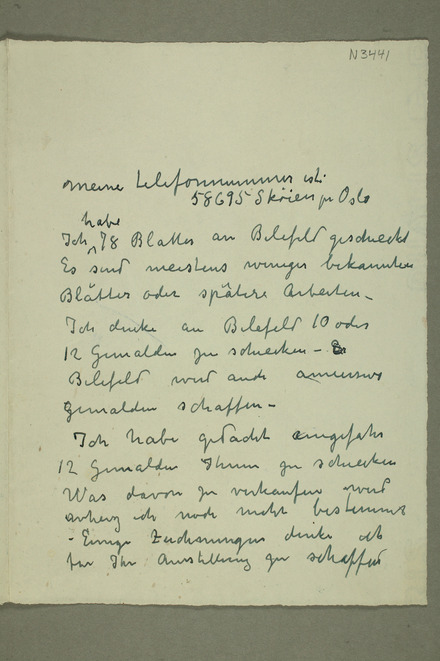 N3441
meine telefonnummer ist:
58695 Sköien pr Oslo
habe
Ich 78 Blatter an Bilefeld geschieckt
Es sind meistens weniger bekannten
Blätter oder spätere Arbeiten –
Ich dinke an Bilefeld 10 oder
12 Gemalden zu schiecken –
Bilefeld wird ande
Gemalden schaffen –
Ich habe gedacht ungefahr
12 Gemalden Ihnen zu schiecken
Was davon zu verkaufen wird
ich noch nicht bestimmt
– Einige Zeichnungen dinke ich
fur Ihr Ausstellung zu schaffen